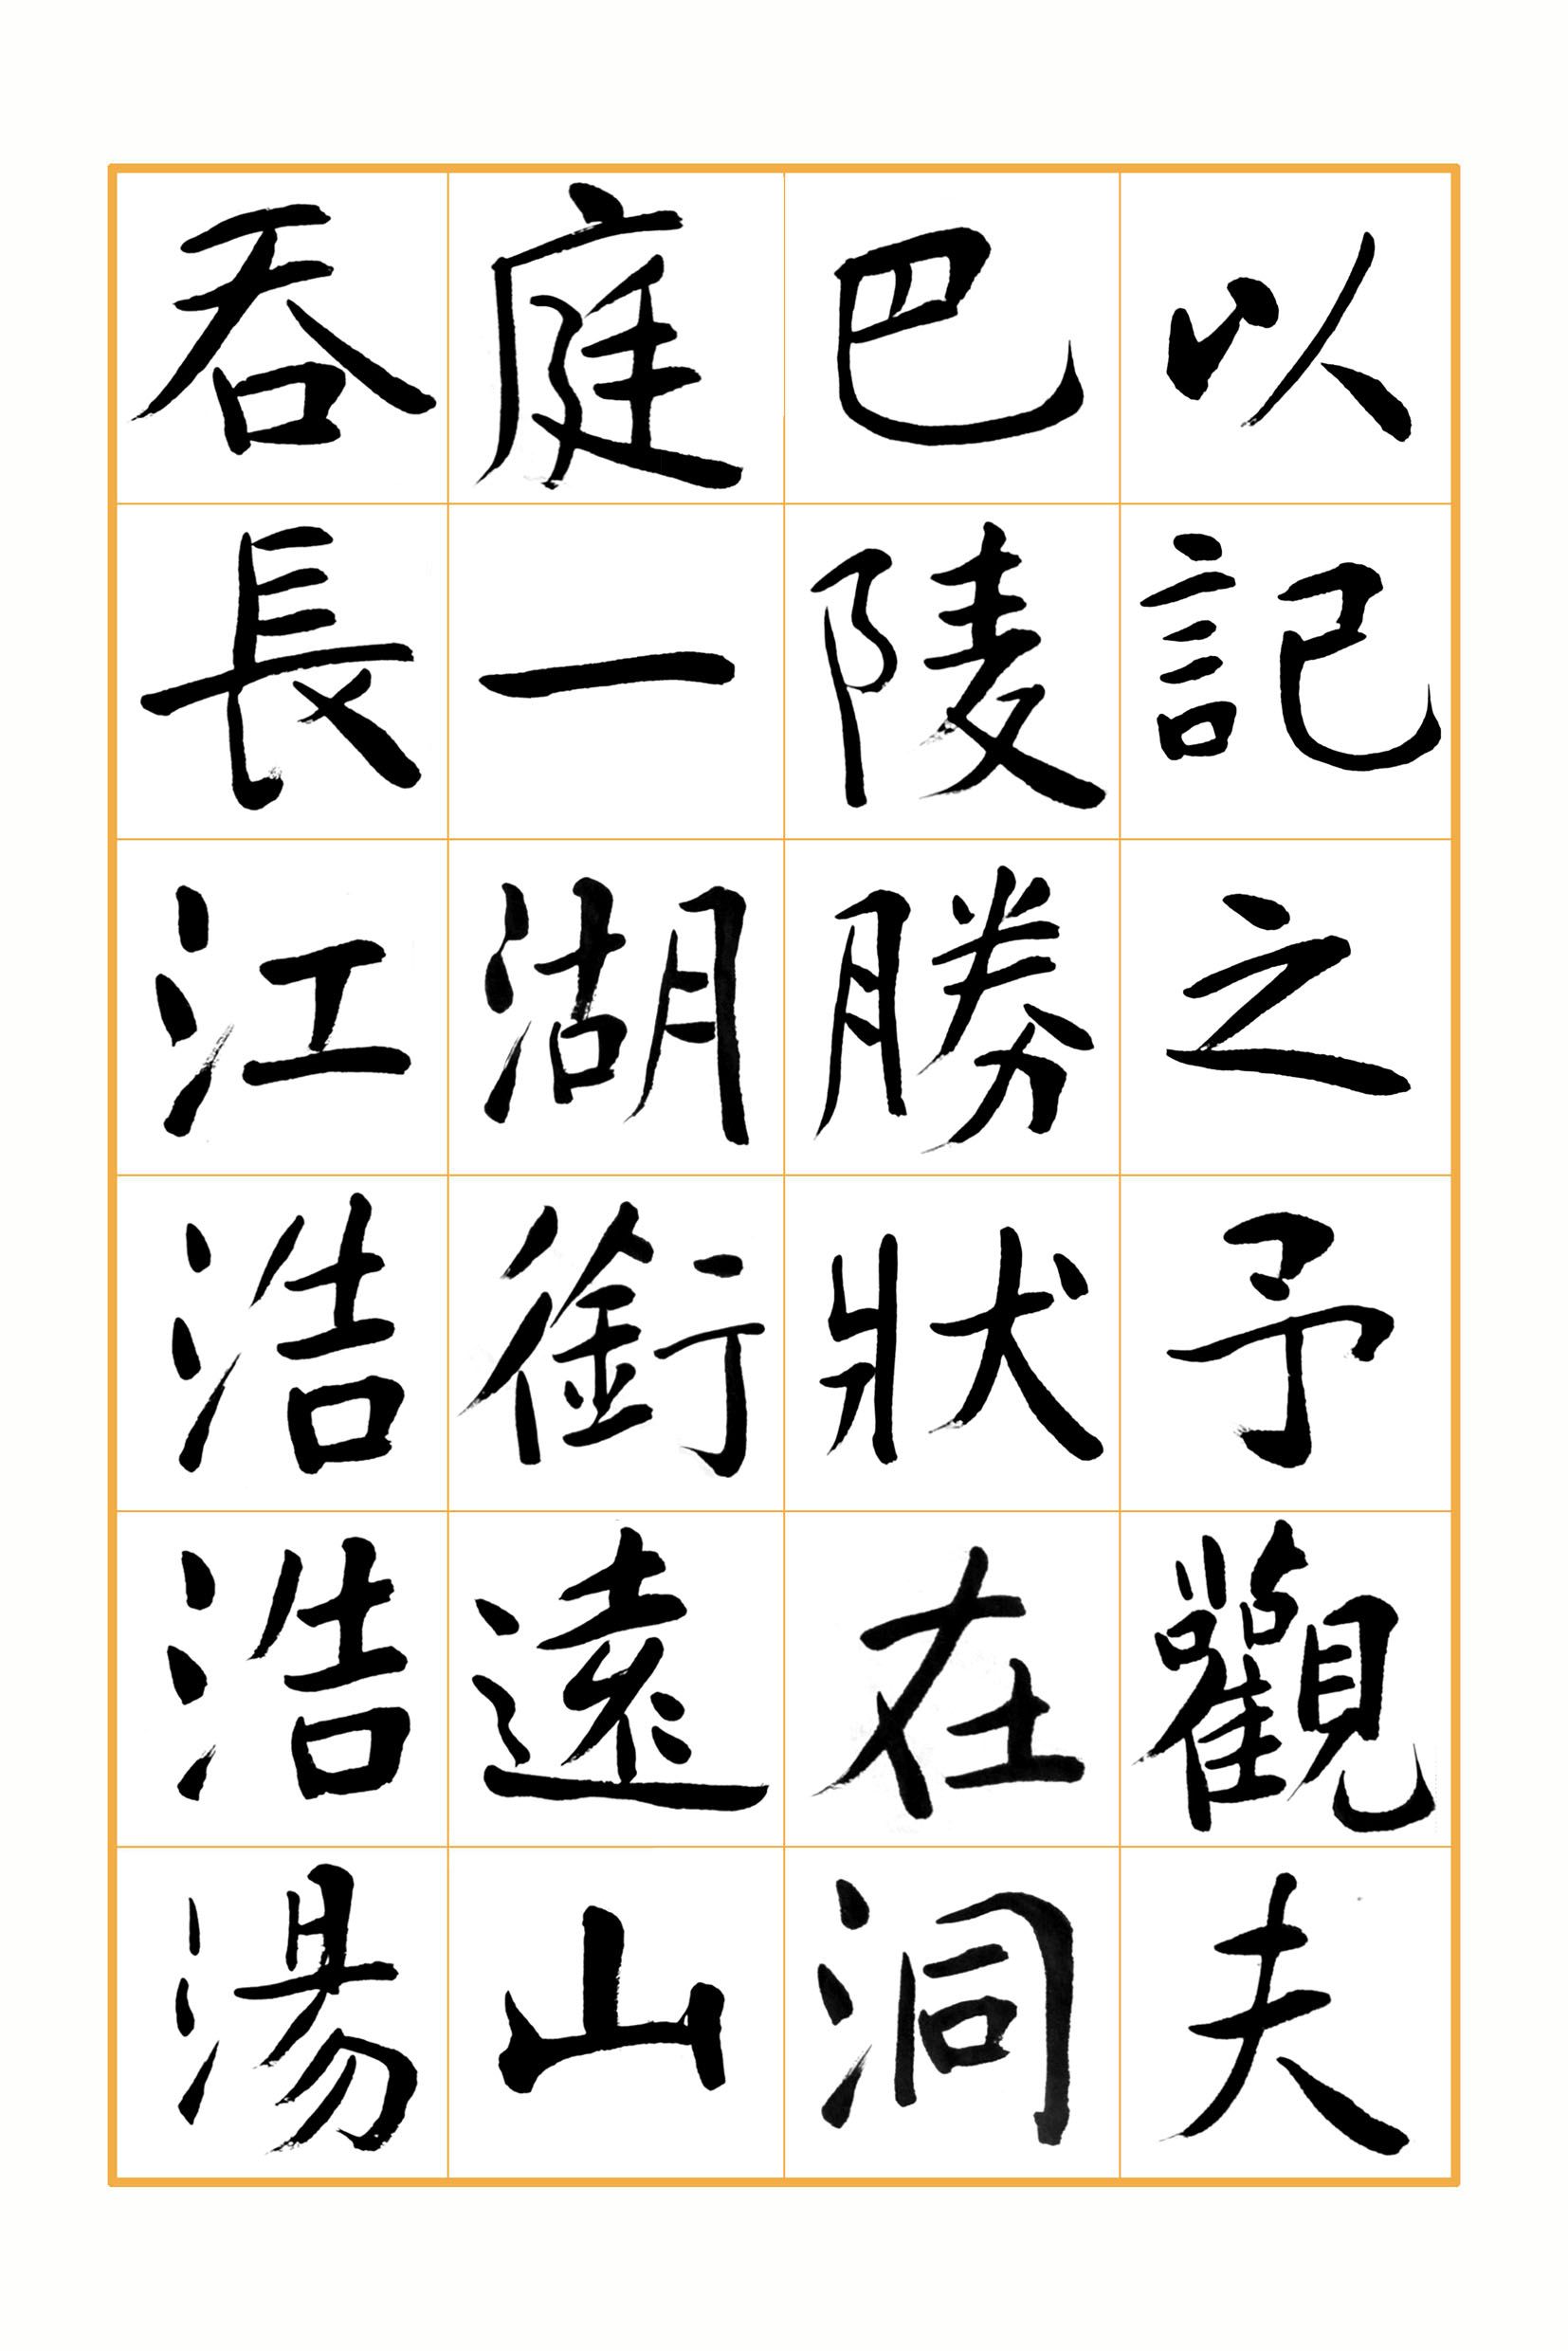 以記之予觀夫
巴陵勝狀在洞
庭一湖銜遠山
吞長江浩浩湯